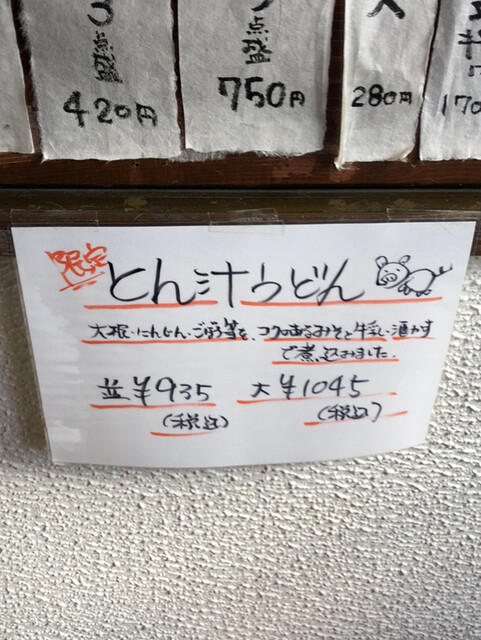 点盛
420円
点盛
750円
280円
170
限定
とん汁うどん
大根・にんじん・ごぼう等を、コクのあるみそと牛乳・酒かす
で煮込みました.
並¥935
(税込)
大¥1045
(税込)